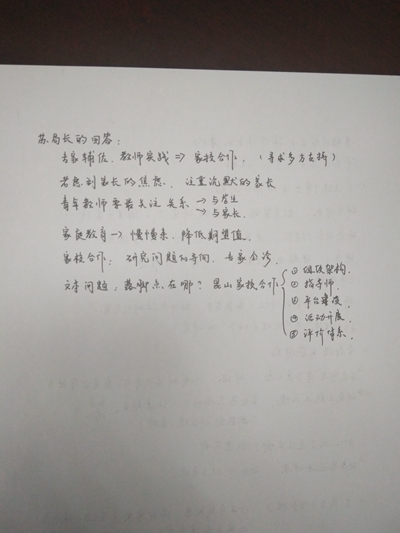 苏局长的回答：
专家辅佐，教师实践 => 家校合作，（寻求多方支撑）
考虑到家长的焦虑，注重沉默的家长
青年教师要最关注关系 → 与学生
→ 与家长。
家庭教育 → 慢慢来，降低期望值。
家校合作：研究问题的导向，专家会诊。
文本问题：落脚点在哪？昆山家校合作 { ① 组织架构，
② 指导师，
③ 平台建设
④ 活动开展，
⑤ 评价体系，